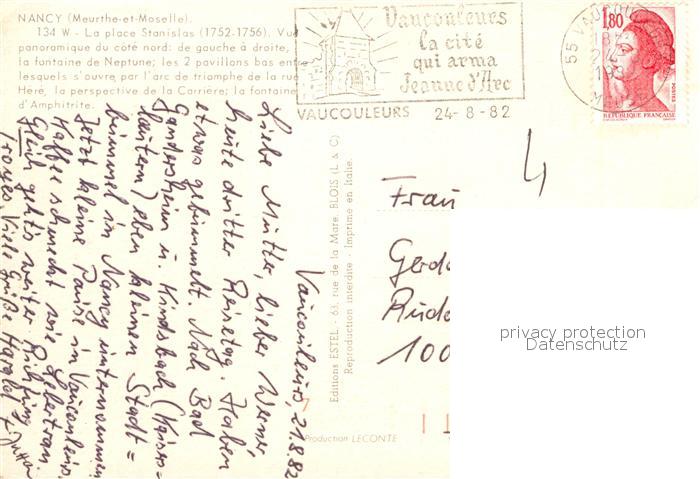 NANCY (Meurthe-et-Moselle).
134 W - La place Stanislas (1752-1756). Vue
panoramique du côté nord: de gauche à droite,
la fontaine de Neptune; les 2 pavillons bas entre
lesquels s'ouvre par l'arc de triomphe de la rue
Héré, la perspective de la Carrière; la fontaine
d'Amphitrite.
Vaucouleurs
la cité
qui arma
Jeanne d'Arc
VAUCOULEURS 24-8-82
55 VAUCOULEURS
1,80
POSTES
REPUBLIQUE FRANÇAISE
Vaucouleurs, 21.8.82
Liebe Mutter, lieber Werner,
heute dritter Reisetag. Haben
etwas gebummelt. Nach Bad
Gandersheim u. Kindsbach (Kaisers=
lautern) eben kleinen Stadt=
bummel in Nancy unternommen
Jetzt kleine Pause in Vaucouleurs.
Kaffee schmeckt wie Lebertran.
Gleich geht's weiter Richtung
Troyes. Viele Grüße Harald + Jutta
Editions ESTEL - 63, rue de la Mare, BLOIS (L & C)
Reproduction interdite - Imprimé en Italie.
Production LECONTE
Frau
Gerd
Rud
100
privacy protection
Datenschutz